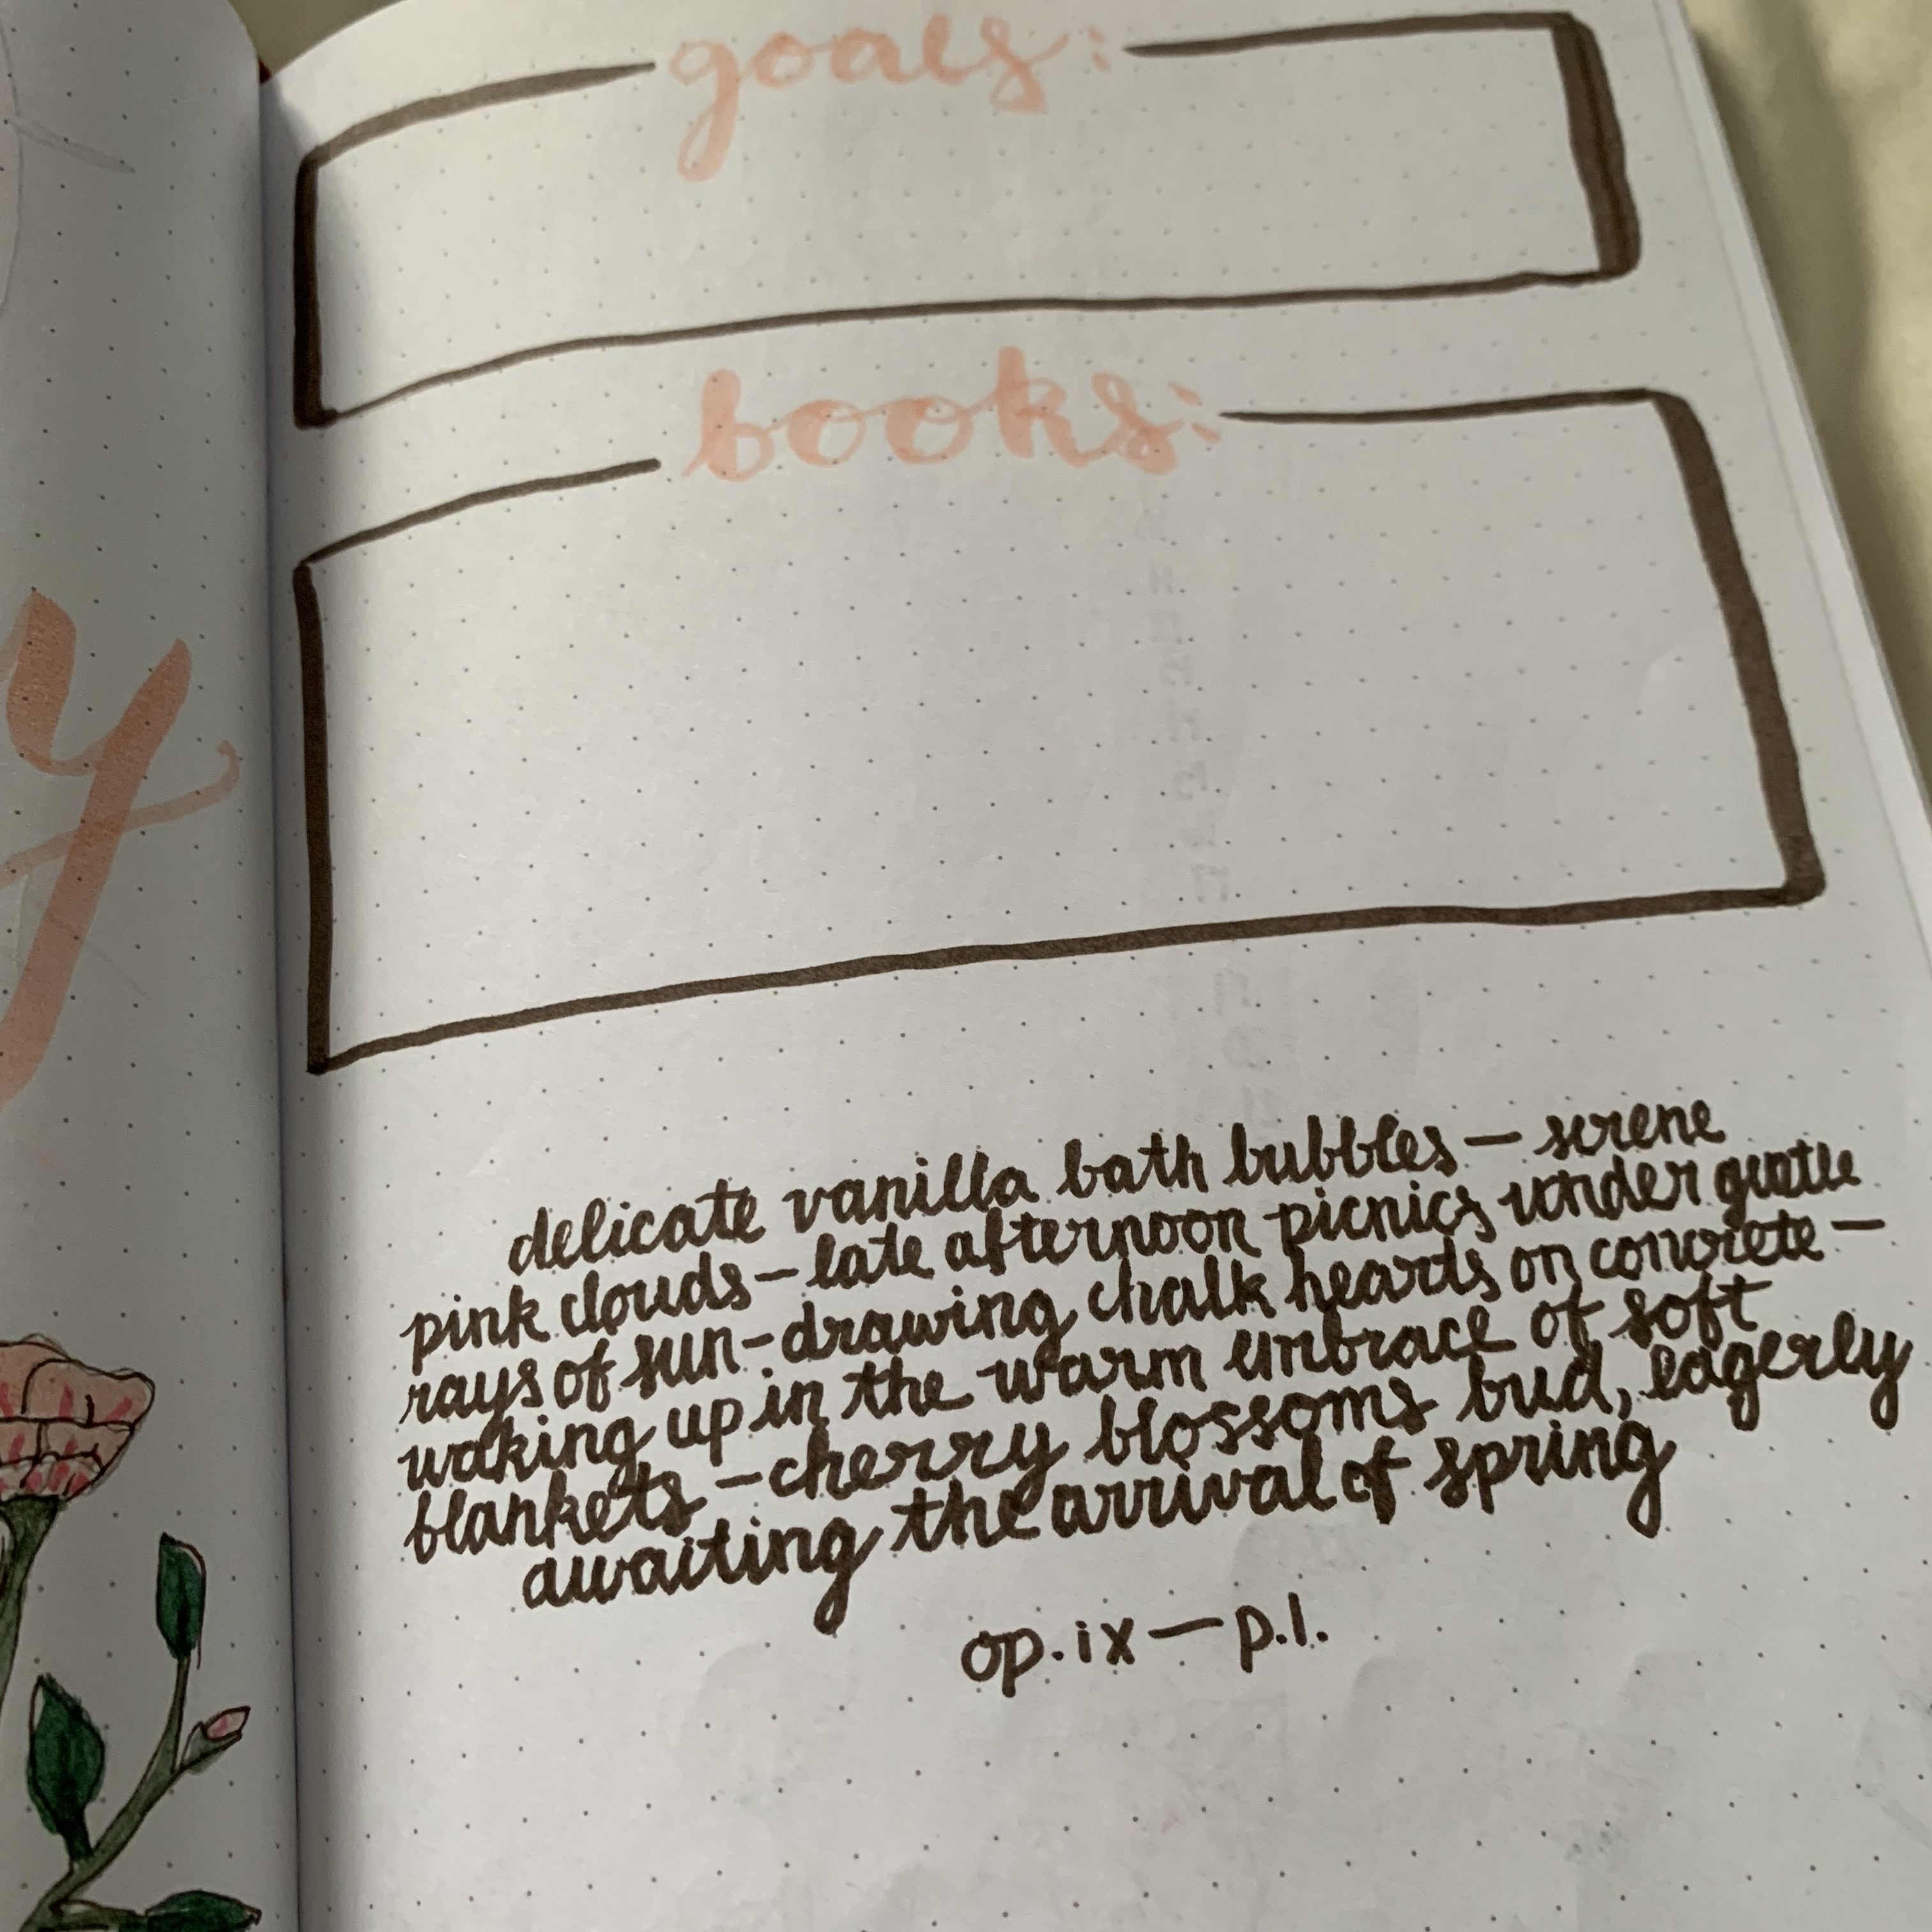 goals:
books:
y
delicate vanilla bath bubbles — serene
pink clouds — late afternoon picnics under gentle
rays of sun - drawing chalk hearts on concrete —
waking up in the warm embrace of soft
blankets - cherry blossoms bud, eagerly
awaiting the arrival of spring
op. ix — p.l.